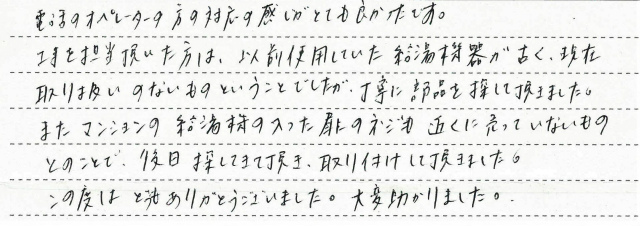 電話のオペレーターの方の対応の感じがとても良かったです。
工事を担当頂いた方は、以前使用していた給湯機器が古く、現在
取り扱いのないものということでしたが、丁寧に部品を探して頂きました。
またマンションの給湯機の入った扉のネジも近くに売っていないもの
とのことで、後日探してきて頂き、取り付けして頂きました。
この度はどうもありがとうございました。大変助かりました。